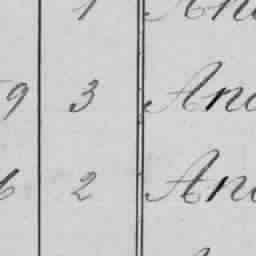 1 An
9 3 An
6 2 An